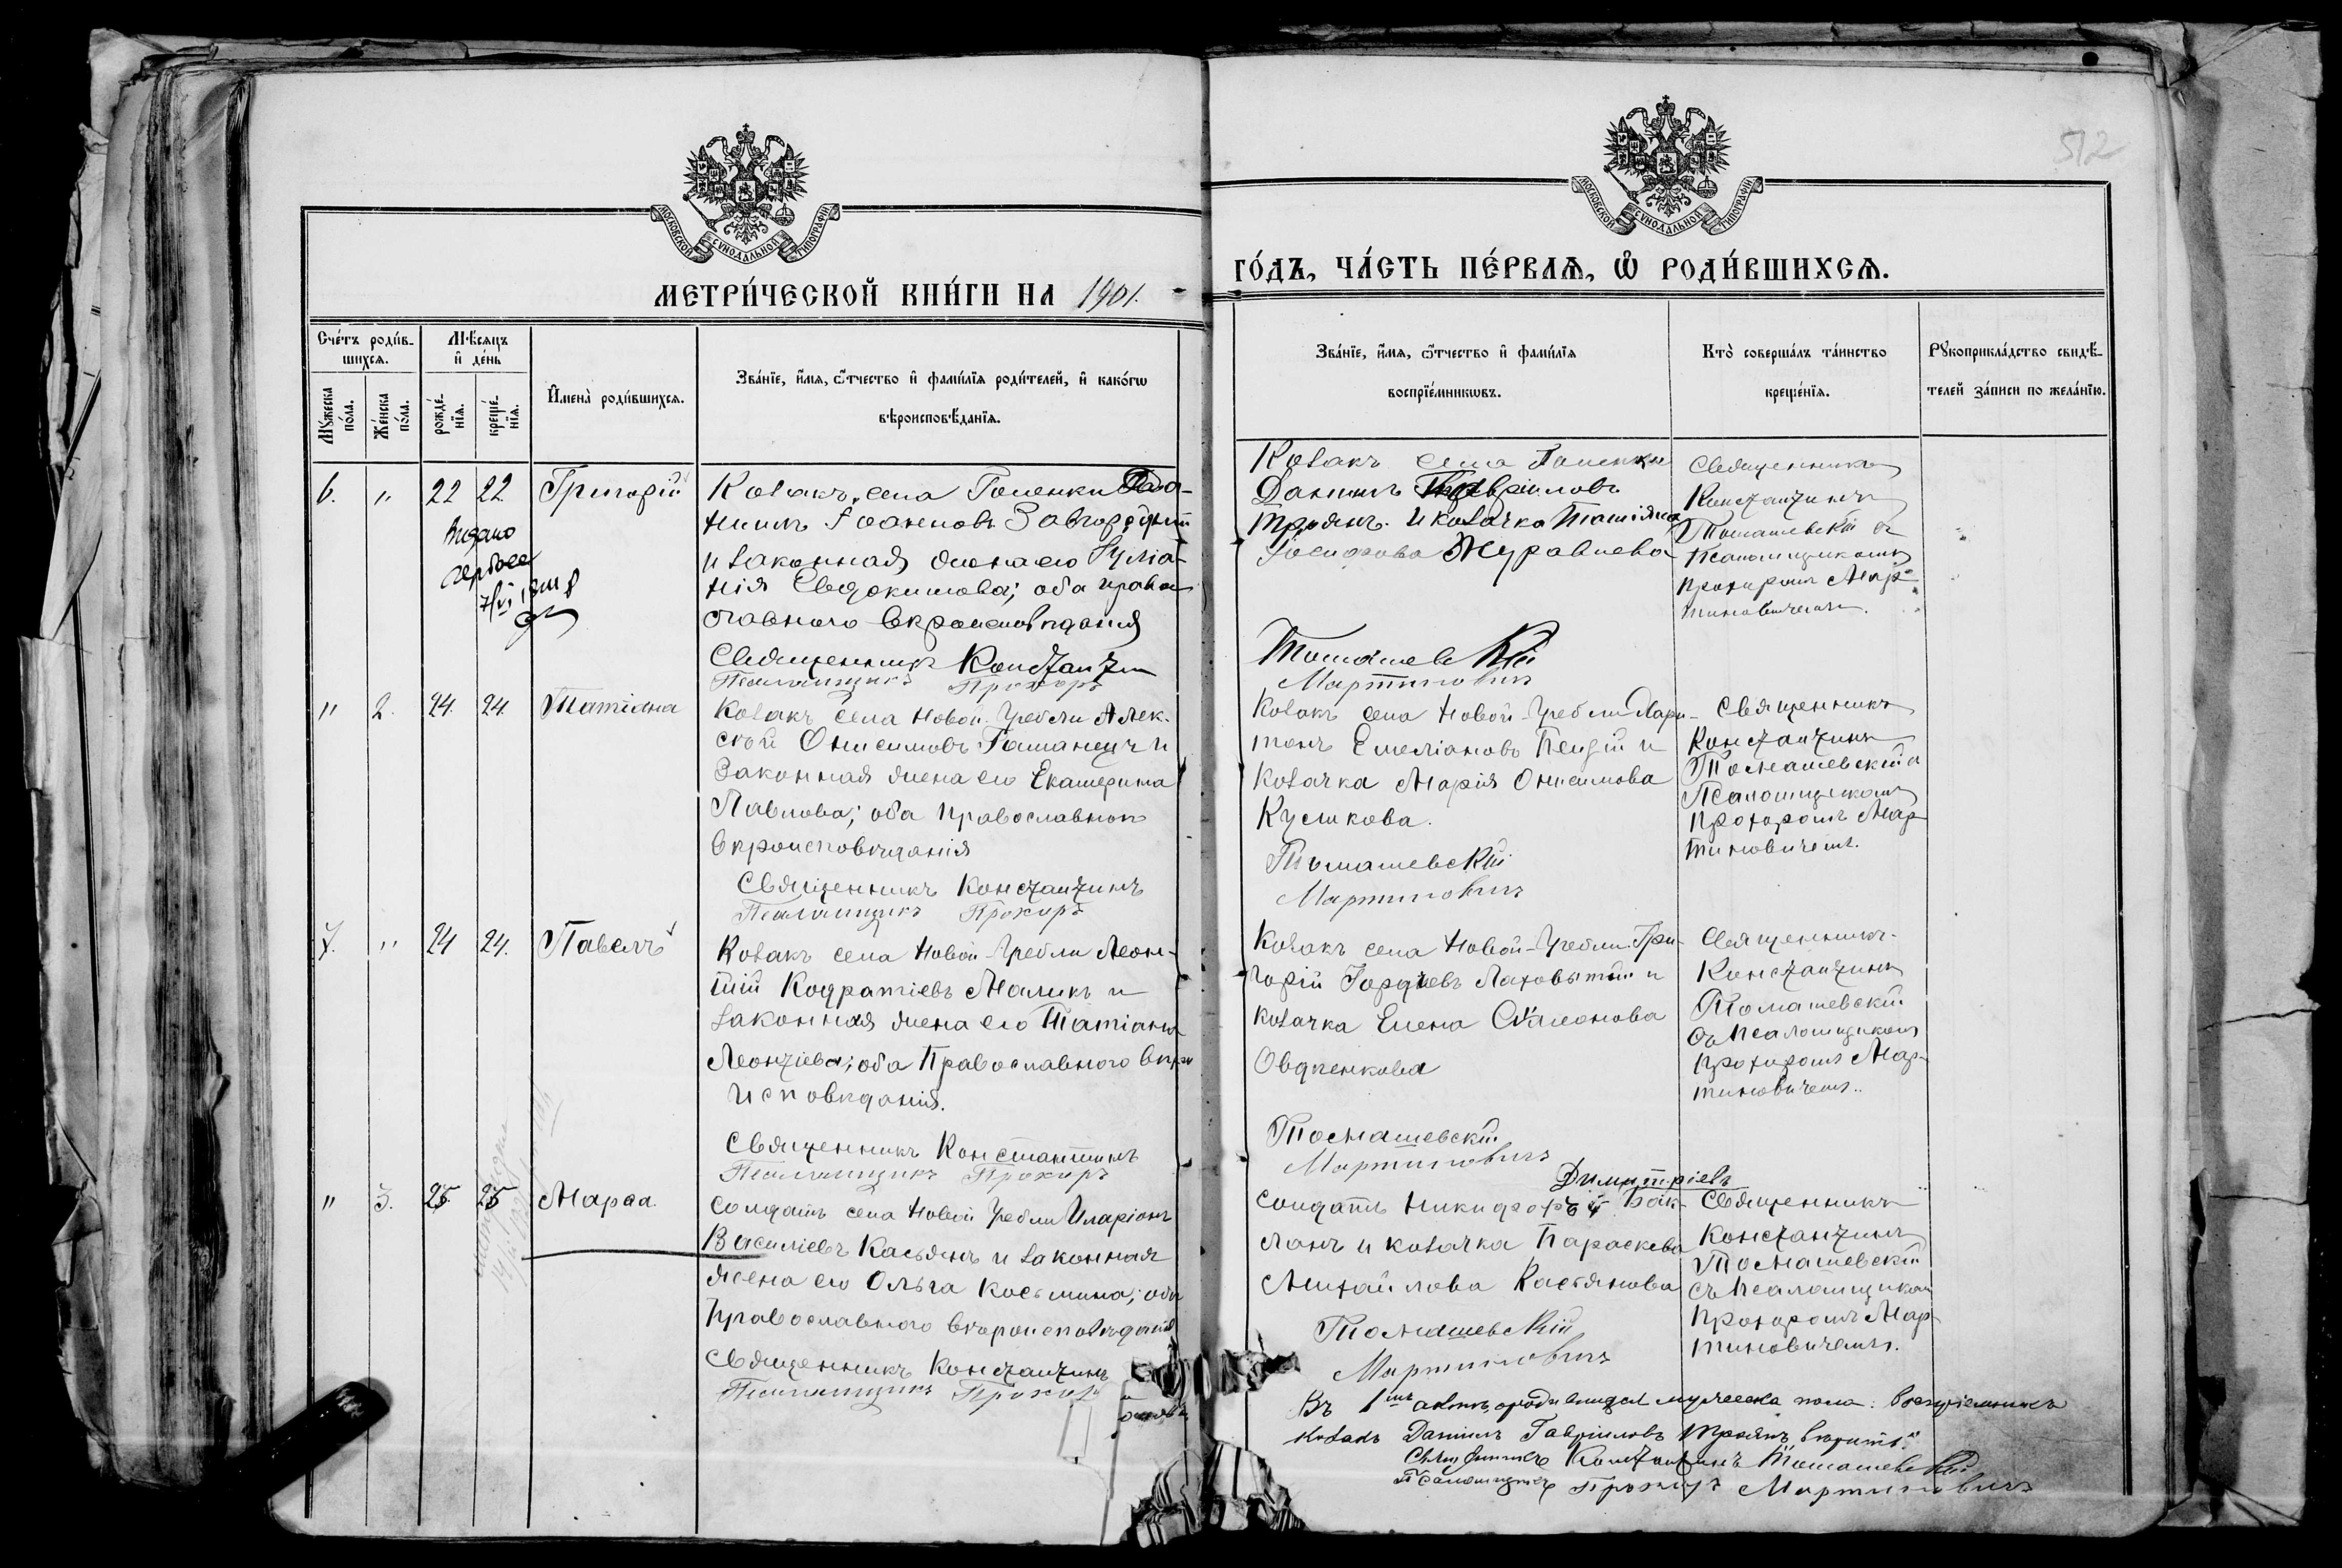 512
МОСКОВСКОЙ СѴНОДАЛЬНОЙ ТИПОГРАФІИ
МОСКОВСКОЙ СѴНОДАЛЬНОЙ ТИПОГРАФІИ
МЕТРИ́ЧЕСКОЙ КНИ́ГИ НА 1901.
ГО́ДЪ, ЧА́СТЬ ПЕ́РВАѦ, Ѽ РОДИ́ВШИХСѦ.
Сче́тъ роди́в-
шихсѧ.
Мꙋ́жеска по́ла.
Же́нска по́ла.
Мѣ́сѧцъ
и҆ де́нь
рожде́-
нїѧ.
креще́-
нїѧ.
И҆мена̀ роди́вшихсѧ.
Зва́нїе, и҆́мѧ, ѻ҆́тчество и҆ фами́лїѧ роди́телей, и҆ како́гѡ
вѣроисповѣ́данїѧ.
Зва́нїе, и҆́мѧ, ѻ҆́тчество и҆ фами́лїѧ
воспрїе́мникѡвъ.
Кто̀ соверша́лъ та́инство
креще́нїѧ.
Рꙋкоприкла́дство свидѣ́-
телей за́писи по жела́нїю.
6. " 22 22 Григорій
Козакъ села Голенки
Іоакимовъ Завгородній
и законная жена его Іуліа-
нія Евдокимова; оба право-
славнаго вѣроисповѣданія
Священникъ Константин
Псаломщикъ Прохоръ
Козакъ села Голенки
Даніилъ Гавріиловъ
Троянъ и козачка Татіяна
Іосифова Журавлева
Томашевскій
Мартиновичъ
Священникъ
Константинъ
Томашевскій съ
Псаломщикомъ
Прохоромъ Мар-
тиновичемъ.
" 2. 24. 24. Татіяна
Козакъ села Новой-Гребли Алек-
сѣй Онисимовъ Гаманецъ и
законная жена его Екатерина
Павлова; оба православнаго
вѣроисповѣданія
Священникъ Константинъ
Псаломщикъ Прохоръ
Козакъ села Новой-Гребли Хари-
тонъ Емеліановъ и
козачка Марія Онисимова
Кушкова.
Томашевскій
Мартиновичъ
Священникъ
Константинъ
Томашевскій съ
Псаломщикомъ
Прохоромъ Мар-
тиновичемъ.
7. " 24 24. Павелъ
Козакъ села Новой-Гребли Леон-
тій Кодратіевъ Маликъ и
законная жена его Татіана
Леонтіева; оба Православного вѣро
исповѣданія.
Священникъ Константинъ
Псаломщикъ Прохоръ
Козакъ села Новой-Гребли Гри-
горій Гордіевъ и
козачка Елена Симеонова
Овдѣенкова
Томашевскій
Мартиновичъ
Священникъ
Константинъ
Томашевскій
съ Псаломщикомъ
Прохоромъ Мар-
тиновичемъ.
" 3. 25 25 Марѳа.
Солдатъ села Новой Гребли Иларіонъ
Василіевъ Касьянъ и законная
жена его Ольга Косьмина; оба
Православного вѣроисповѣданія
Священникъ Константинъ
Псаломщикъ Прохоръ
Димитріевъ
Солдатъ Никифоръ Бак-
ланъ и козачка Параскева
Михайлова Касьянова
Томашевскій
Мартиновичъ
Священникъ
Константинъ
Томашевскій
съ Псаломщикомъ
Прохоромъ Мар-
тиновичемъ.
Въ актѣ родившихся мужеска пола: воспріемникъ
козакъ Даніилъ Гавріиловъ Троянъ вѣрить.
Священникъ Константинъ Томашевскій
Псаломщикъ Прохоръ Мартиновичъ